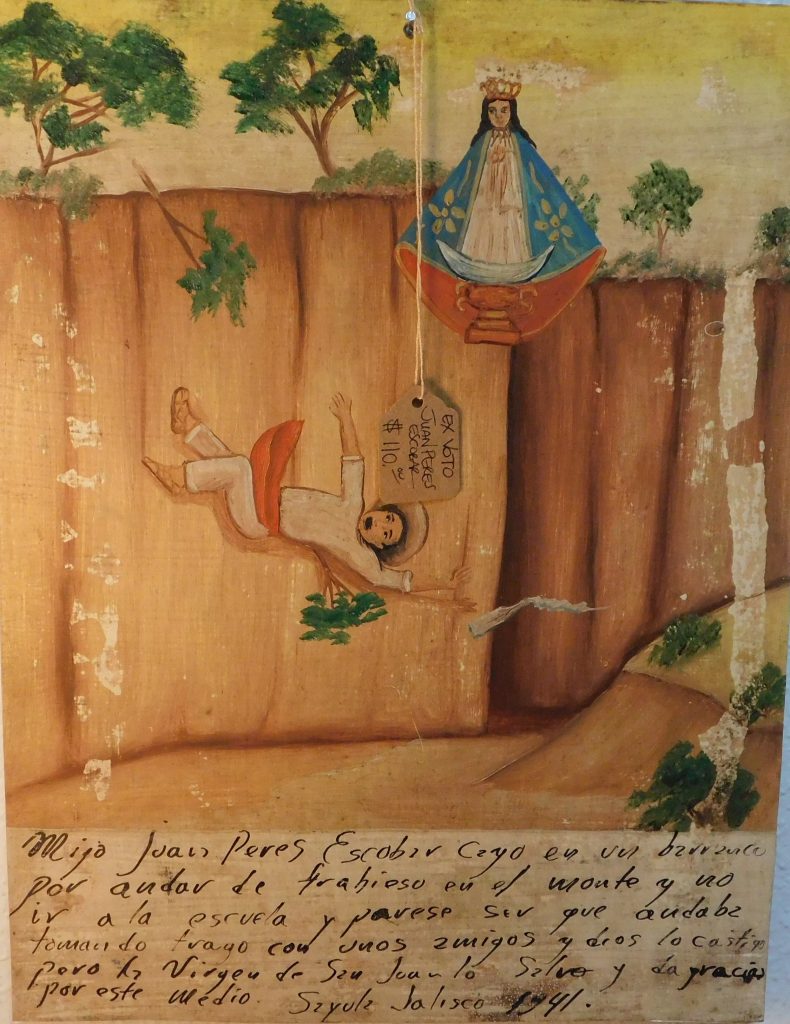 EX VOTO
JUAN PERES
ESCOBAR
$ 110.00
Mijo Juan Peres Escobar Cayo en un barranco
por andar de trabieso en el monte y no
ir a la escuela y parese ser que andaba
tomando trago con unos amigos y dios lo castigo
pero la Virgen de San Juan lo Salvo y da gracias
por este medio. Sayula Jalisco 1941.